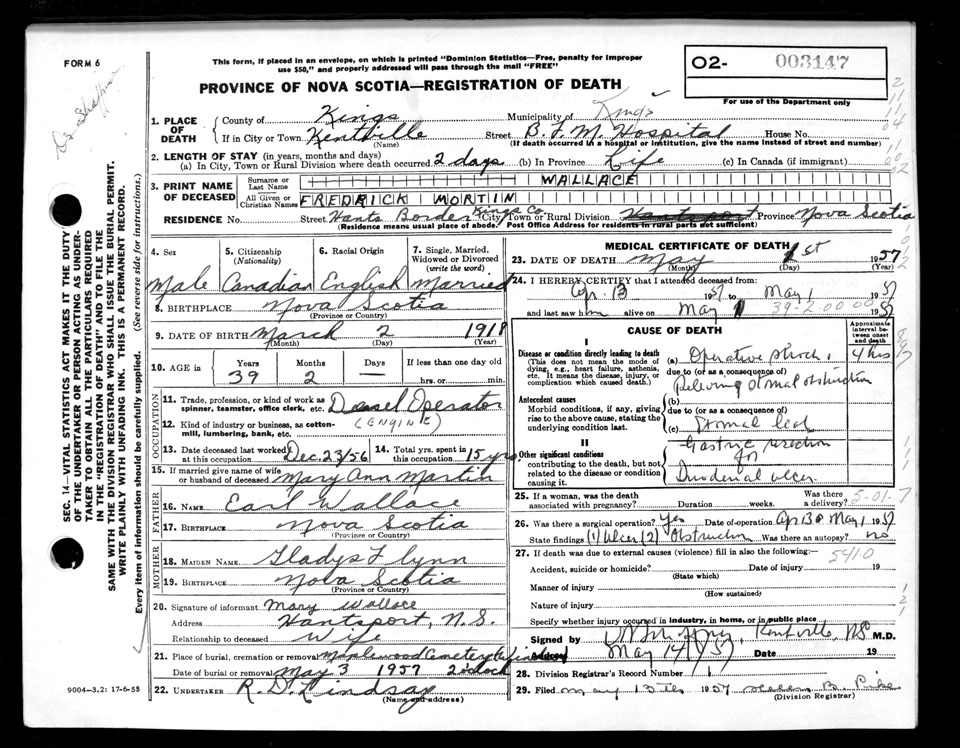 FORM 6
This form, if placed in an envelope, on which is printed "Dominion Statistics—Free, penalty for improper
use $50," and properly addressed will pass through the mail "FREE"
PROVINCE OF NOVA SCOTIA—REGISTRATION OF DEATH
O2- 003147
For use of the Department only
SEC. 14—VITAL STATISTICS ACT MAKES IT THE DUTY
OF THE UNDERTAKER OR PERSON ACTING AS UNDER-
TAKER TO OBTAIN ALL THE PARTICULARS REQUIRED
IN THE "REGISTRATION OF DEATH" AND TO FILE THE
SAME WITH THE DIVISION REGISTRAR WHO SHALL ISSUE THE BURIAL PERMIT.
WRITE PLAINLY WITH UNFADING INK. THIS IS A PERMANENT RECORD.
Every item of information should be carefully supplied. (See reverse side for instructions.)
1. PLACE OF DEATH
County of Kings Municipality of Kings
If in City or Town Kentville Street B.F.M. Hospital House No.
(Name) (If death occurred in a hospital or institution, give the name instead of street and number)
2. LENGTH OF STAY (in years, months and days)
(a) In City, Town or Rural Division where death occurred 2 days (b) In Province Life (c) In Canada (if immigrant)
3. PRINT NAME OF DECEASED
Surname or Last Name WALLACE
All Given or Christian Names FREDRICK MORTIN
RESIDENCE No. Street Hants Border Kings Co. City, Town or Rural Division Hantsport Province Nova Scotia
(Residence means usual place of abode. Post Office Address for residents in rural parts not sufficient)
4. Sex 5. Citizenship (Nationality) 6. Racial Origin 7. Single, Married, Widowed or Divorced (write the word)
Male Canadian English Married
8. BIRTHPLACE Nova Scotia
(Province or Country)
9. DATE OF BIRTH March 2 1918
(Month) (Day) (Year)
10. AGE in Years Months Days If less than one day old
39 2 — hrs. or min.
OCCUPATION
11. Trade, profession, or kind of work as spinner, teamster, office clerk, etc. Deasel Operator
(ENGINE)
12. Kind of industry or business, as cotton-mill, lumbering, bank, etc.
13. Date deceased last worked at this occupation Dec 23/56 14. Total yrs. spent in this occupation 15 yrs.
15. If married give name of wife or husband of deceased Mary Ann Martin
FATHER
16. NAME Earl Wallace
17. BIRTHPLACE Nova Scotia
(Province or Country)
MOTHER
18. MAIDEN NAME Gladys Flynn
19. BIRTHPLACE Nova Scotia
(Province or Country)
20. Signature of informant Mary Wallace
Address Hantsport, N.S.
Relationship to deceased Wife
21. Place of burial, cremation or removal Maplewood Cemetery
Date of burial or removal May 3 1957 2 o'clock
22. UNDERTAKER R. D. Lindsay
(Name and address)
9004—3.2: 17-6-55
MEDICAL CERTIFICATE OF DEATH
23. DATE OF DEATH May 1st 1957
(Month) (Day) (Year)
24. I HEREBY CERTIFY that I attended deceased from:
Apr. 13 1957 to May 1 1957
and last saw him alive on May 1 1957
39-2 00 00
CAUSE OF DEATH
Approximate interval between onset and death
I
Disease or condition directly leading to death
(This does not mean the mode of dying, e.g., heart failure, asthenia, etc. It means the disease, injury, or complication which caused death.)
(a) Operative shock, 4 hrs
due to (or as a consequence of)
(b) Relieving stomal obstruction
Antecedent causes
Morbid conditions, if any, giving rise to the above cause, stating the underlying condition last.
due to (or as a consequence of)
(c) Stomal
II
Other significant conditions
contributing to the death, but not related to the disease or condition causing it.
Gastric resection
for
Duodenal ulcer.
25. If a woman, was the death associated with pregnancy? Duration weeks. Was there a delivery?
5-01-7
26. Was there a surgical operation? Yes Date of operation Apr 13 & May 1 1957
State findings (1) Ulcer (2) Obstruction Was there an autopsy? no
27. If death was due to external causes (violence) fill in also the following:—
5410
Accident, suicide or homicide? Date of injury 19
(State which)
Manner of injury
(How sustained)
Nature of injury
Specify whether injury occurred in industry, in home, or in public place
Signed by Kentville, NS M.D.
Address May 14/57 Date 19
28. Division Registrar's Record Number
29. Filed May 15th 1957 B. Pike
(Division Registrar)